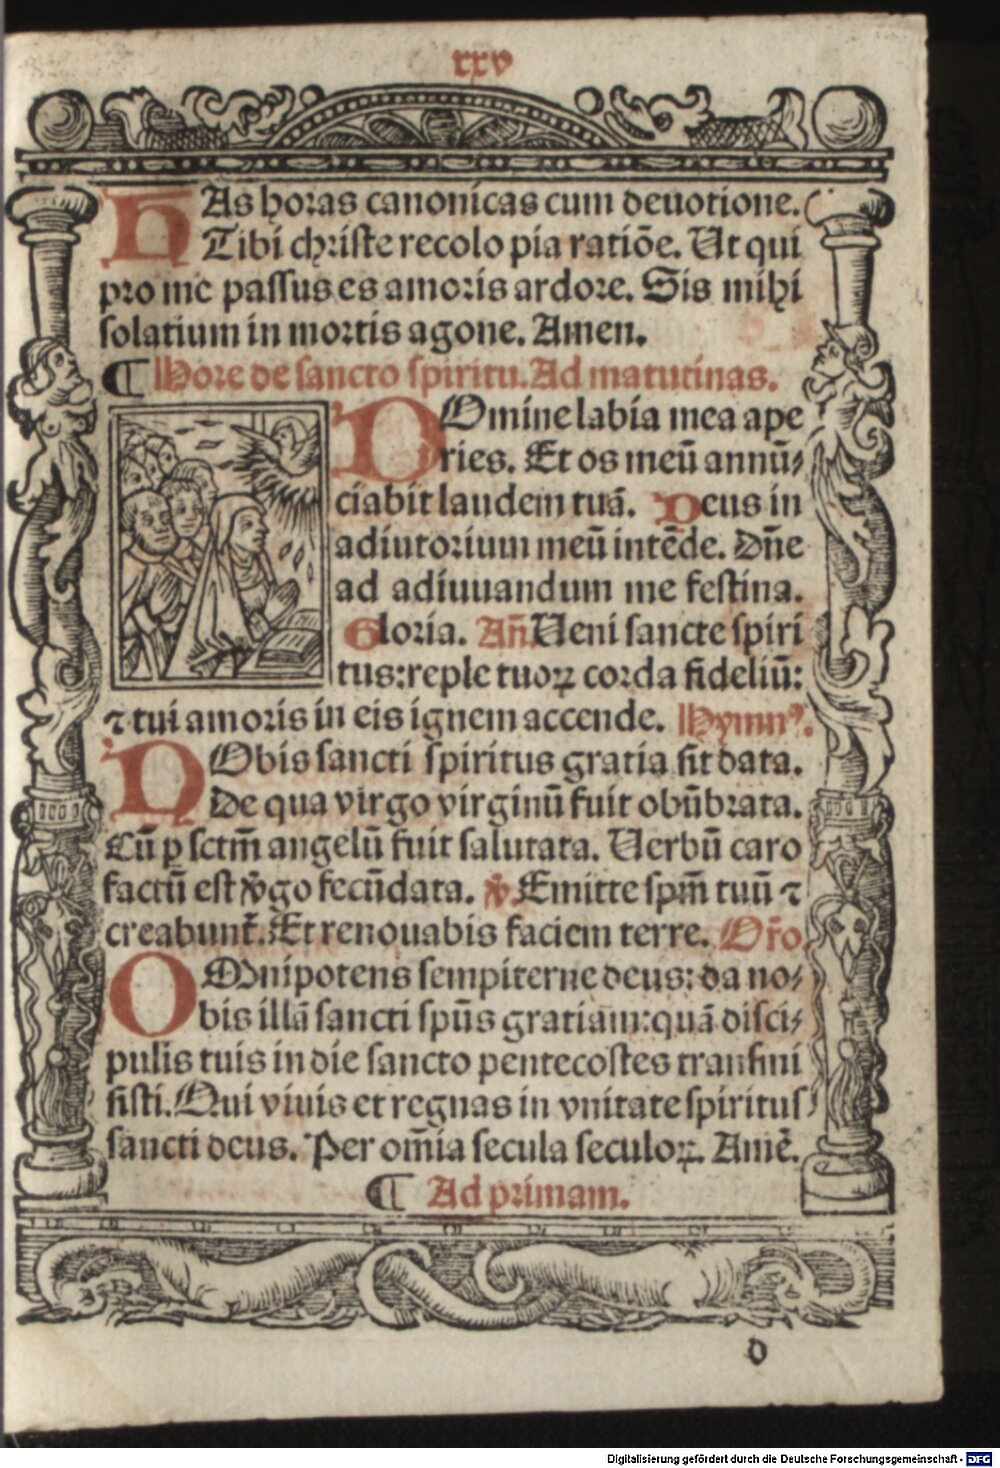 xxv
HAs horas canonicas cum deuotione.
Tibi christe recolo pia ratiōe. Ut qui
pro me passus es amoris ardore. Sis mihi
solatium in mortis agone. Amen.
¶ Hore de sancto spiritu. Ad matutinas.
DOmine labia mea ape
ries. Et os meū annū⸗
ciabit laudem tuā. Deus in
adiutorium meū intēde. Dn̄e
ad adiuuandum me festina.
Gloria. Añ. Ueni sancte spiri
tus: reple tuoꝝ corda fideliū:
⁊ tui amoris in eis ignem accende. Hymnꝰ.
NObis sancti spiritus gratia sit data.
De qua virgo virginū fuit obūbrata.
Cū ꝑ sctm̄ angelū fuit salutata. Uerbū caro
factū est v̾go fecūdata. ℣. Emitte spm̄ tuū ⁊
creabunt̄. Et renouabis faciem terre. Or̄o.
OMnipotens sempiterne deus: da no⸗
bis illā sancti spūs gratiam: quā disci⸗
pulis tuis in die sancto pentecostes transmi
sisti. Qui viuis et regnas in vnitate spiritus
sancti deus. Per om̄ia secula seculoꝝ. Amē.
¶ Ad primam.
d
Digitalisierung gefördert durch die Deutsche Forschungsgemeinschaft - DFG